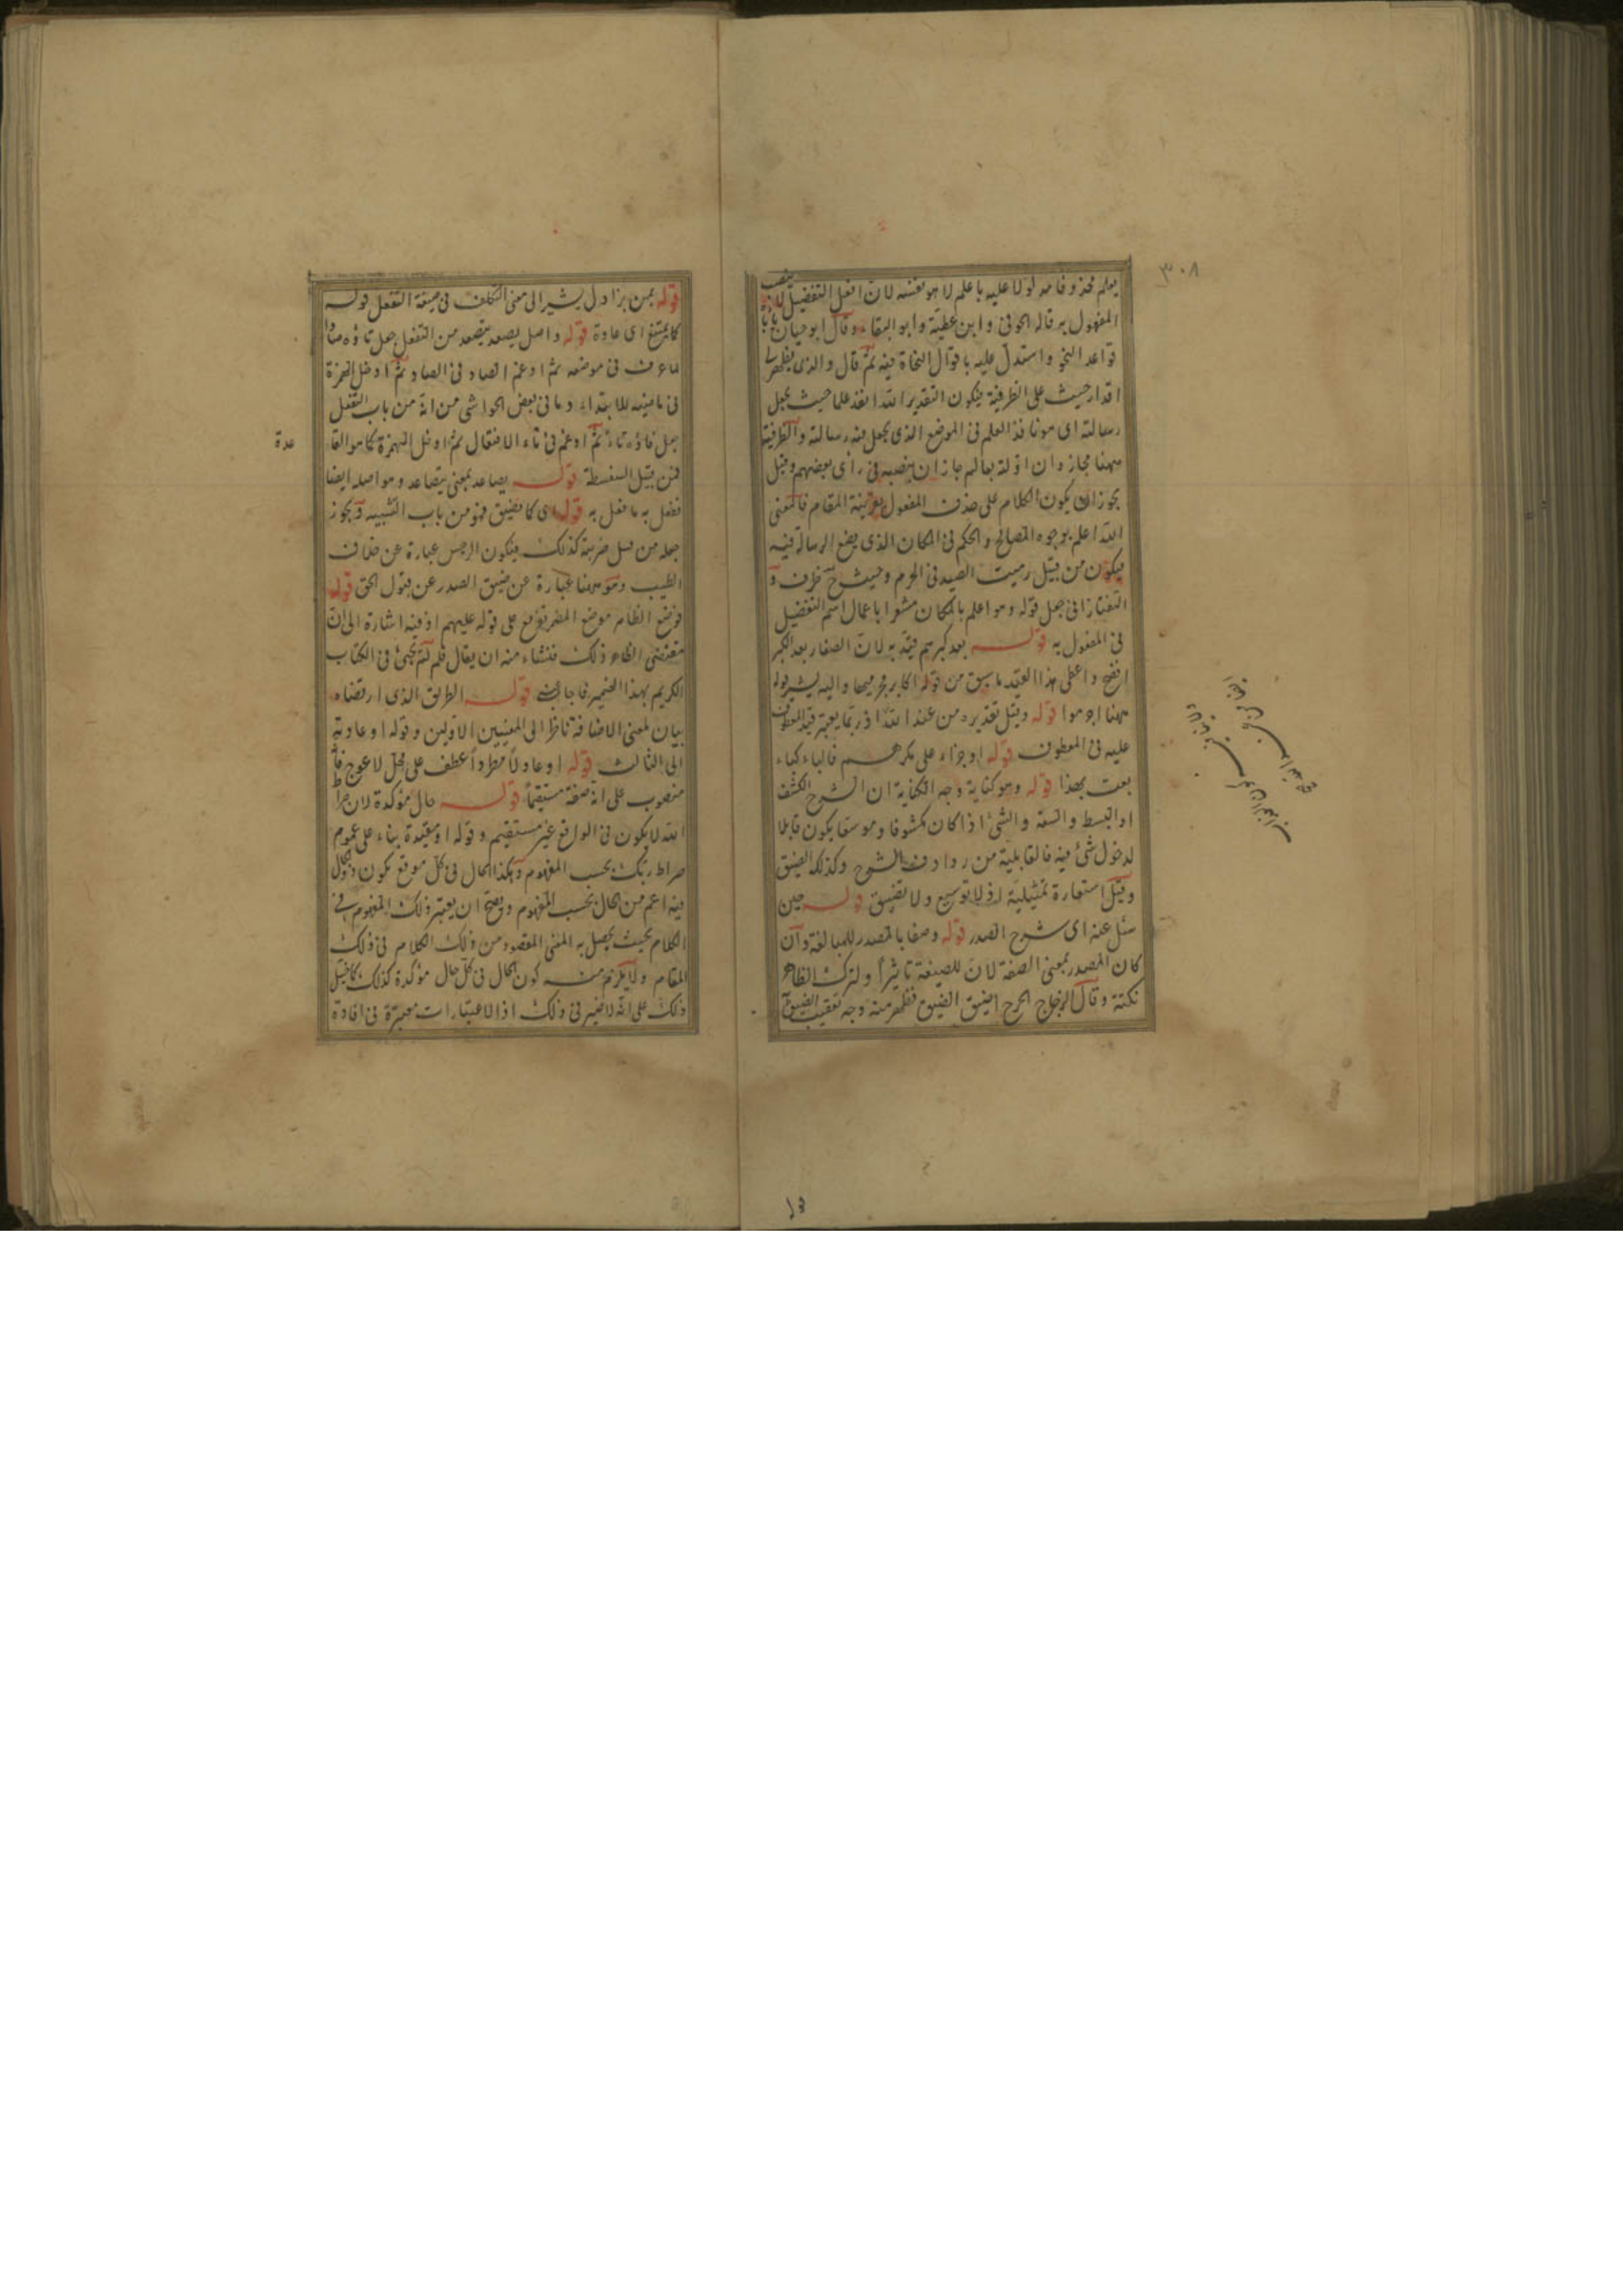 ٣٠٨
يعلم محذوفا مدلولا عليه باعلم لا هو نفسه لان افعل التفضيل لا ينصب
المفعول به قاله الحوفي وابن عطية وابو البقاء وقال ابو حيان
قواعد النحو واستدل عليه باقوال النحاة فيه ثم قال والذي يظهر لي
اقرار حيث على الظرفية فيكون التقدير الله انفذ علما حيث يجعل
رسالته اى هو نافذ العلم فى الموضع الذى يجعل فيه رسالته والظرفية
ههنا مجاز وان اوله بعالم جاز ان ينصبه فى رأى بعضهم وقيل
يجوز ان يكون الكلام على حذف المفعول بقرينة المقام فالمعنى
الله اعلم بوجوه المصالح والحكم فى المكان الذى يضع الرسالة فيه
فيكون من قبيل رميت الصيد فى الحرم وحيث ح ظرف و
التفتازانى جعل قوله وهو اعلم بالمكان مشعرا باعمال اسم التفضيل
فى المفعول به قوله بعد كبرهم قيد به لان الصغار بعد الكبر
اقبح واعطى هذا القيد ما سبق من قوله اكابر مجرميها واليه يشير قوله
ههنا اجرموا قوله وقيل تقديره من عند الله اذ ربما يعتبر قيد المعطوف
عليه فى المعطوف قوله او جزاء على مكرهم فالباء كباء
بعت بهذا قوله وهو كناية وجه الكناية ان الشرح الكشف
او البسط والسعة والشئ اذا كان مكشوفا وموسعا يكون قابلا
لدخول شئ فيه فالقابلية من روادف الشرح وكذلك الضيق
وقيل استعارة تمثيلية اذ لا توسيع ولا تضييق قوله حين
سئل عنه اى شرح الصدر قوله وصفا بالمصدر للمبالغة وان
كان المصدر بمعنى الصفة لان للصيغة تاثيرا ولترك الظاهر
نكتة وقال الزجاج الحرج اضيق الضيق فظهر منه وجه تعقيب الضيق
قوله بمن يزاول يشير الى معنى التكلف فى صيغة التفعل قوله
كما يمتنع اى عادة قوله واصل يصعد يتصعد من التفعل جعل تاؤه صادا
لما عرف فى موضعه ثم ادغم الصاد فى الصاد ثم ادخل الهمزة
فى ماضيه للابتداء وما فى بعض الحواشى من انه من باب التفعل
جعل فاؤه تاء ثم ادغم فى تاء الافتعال ثم ادخل الهمزة كما هو القا
عدة
فمن قبيل السفسطة قوله يصاعد بمعنى يتصاعد وهو اصله ايضا
ففعل به ما فعل به قوله اى كما يضيق فهو من باب التشبيه ويجوز
جعله من قبيل ضربته كذلك فيكون الرجس عبارة عن خلاف
الطيب وهو ههنا عبارة عن ضيق الصدر عن قبول الحق قوله
فوضع الظاهر موضع المضمر تفرع على قوله عليهم اذ فيه اشارة الى ان
مقتضى الظاهر ذلك فنشاء منه ان يقال فلم لم يجئ فى الكتاب
الكريم بهذا الضمير فاجاب قوله الطريق الذى ارتضاه
بيان لمعنى الاضافة ناظرا الى المعنيين الاولين وقوله او عادته
الى الثالث قوله او عادلا مطردا عطف على محل لا عوج
منصوب على انه صفة مستقيما قوله حال مؤكدة لان صراط
الله لا يكون فى الواقع غير مستقيم وقوله او مقيدة بناء على عموم
صراط ربك بحسب المفهوم وهكذا الحال فى كل موقع يكون ذو الحال
فيه اعم من الحال بحسب المفهوم ويصح ان يعتبر ذلك المفهوم فى
الكلام بحيث يحصل به المعنى المقصود من ذلك الكلام فى ذلك
المقام ولا يلزم منه كون الحال فى كل حال مؤكدة كذلك كما خيل
ذلك على انه لا ضير فى ذلك اذ الاعتبارات معتبرة فى افادة